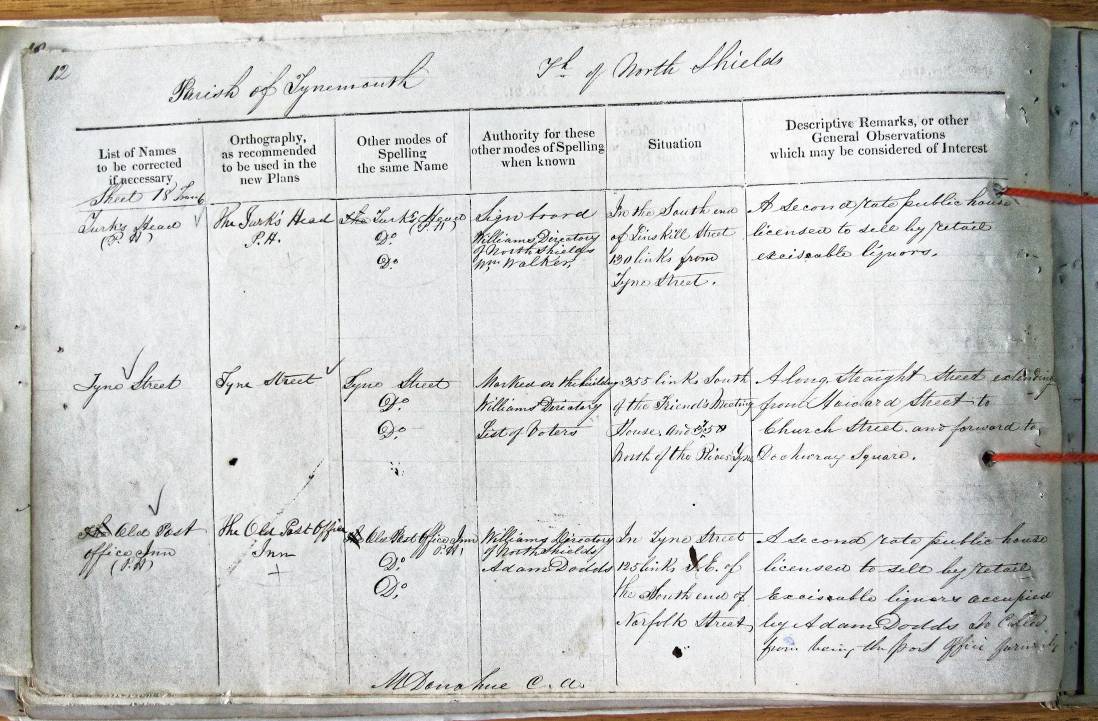 12
Parish of Tynemouth
Tp of North Shields
List of Names
to be corrected
if necessary
Orthography,
as recommended
to be used in the
new Plans
Other modes of
Spelling
the same Name
Authority for these
other modes of Spelling
when known
Situation
Descriptive Remarks, or other
General Observations
which may be considered of Interest
Sheet 18
Turk's Head
(P.H)
The Turk's Head
P.H.
The Turk's Head
(P.H)
Do.
Do.
Sign board
Williams Directory
of North Shields
Wm. Walker.
In the South end
of Linskill Street
130 links from
Tyne Street.
A second rate public house
licensed to sell by retail
exciseable liquors.
Tyne Street
Tyne Street
Tyne Street
Do.
Do.
Marked on the building
Williams Directory
List of Voters
355 links South
of the Friend's Meeting
House and
North of the River Tyne
A long straight Street extending
from Howard Street to
Church Street. and forward to
Dockwray Square.
The Old Post
office Inn
(P.H)
The Old Post Office
Inn
Old Post Office Inn
P.H)
Do.
Do.
Williams Directory
of North Shields
Adam Dodds
In Tyne Street
125 links S.E. of
the South end of
Norfolk Street
A second rate public house
licensed to sell by retail
Exciseable liquors occupied
by Adam Dodds So Called
from being the post Office formerly
McDonahue C.A.